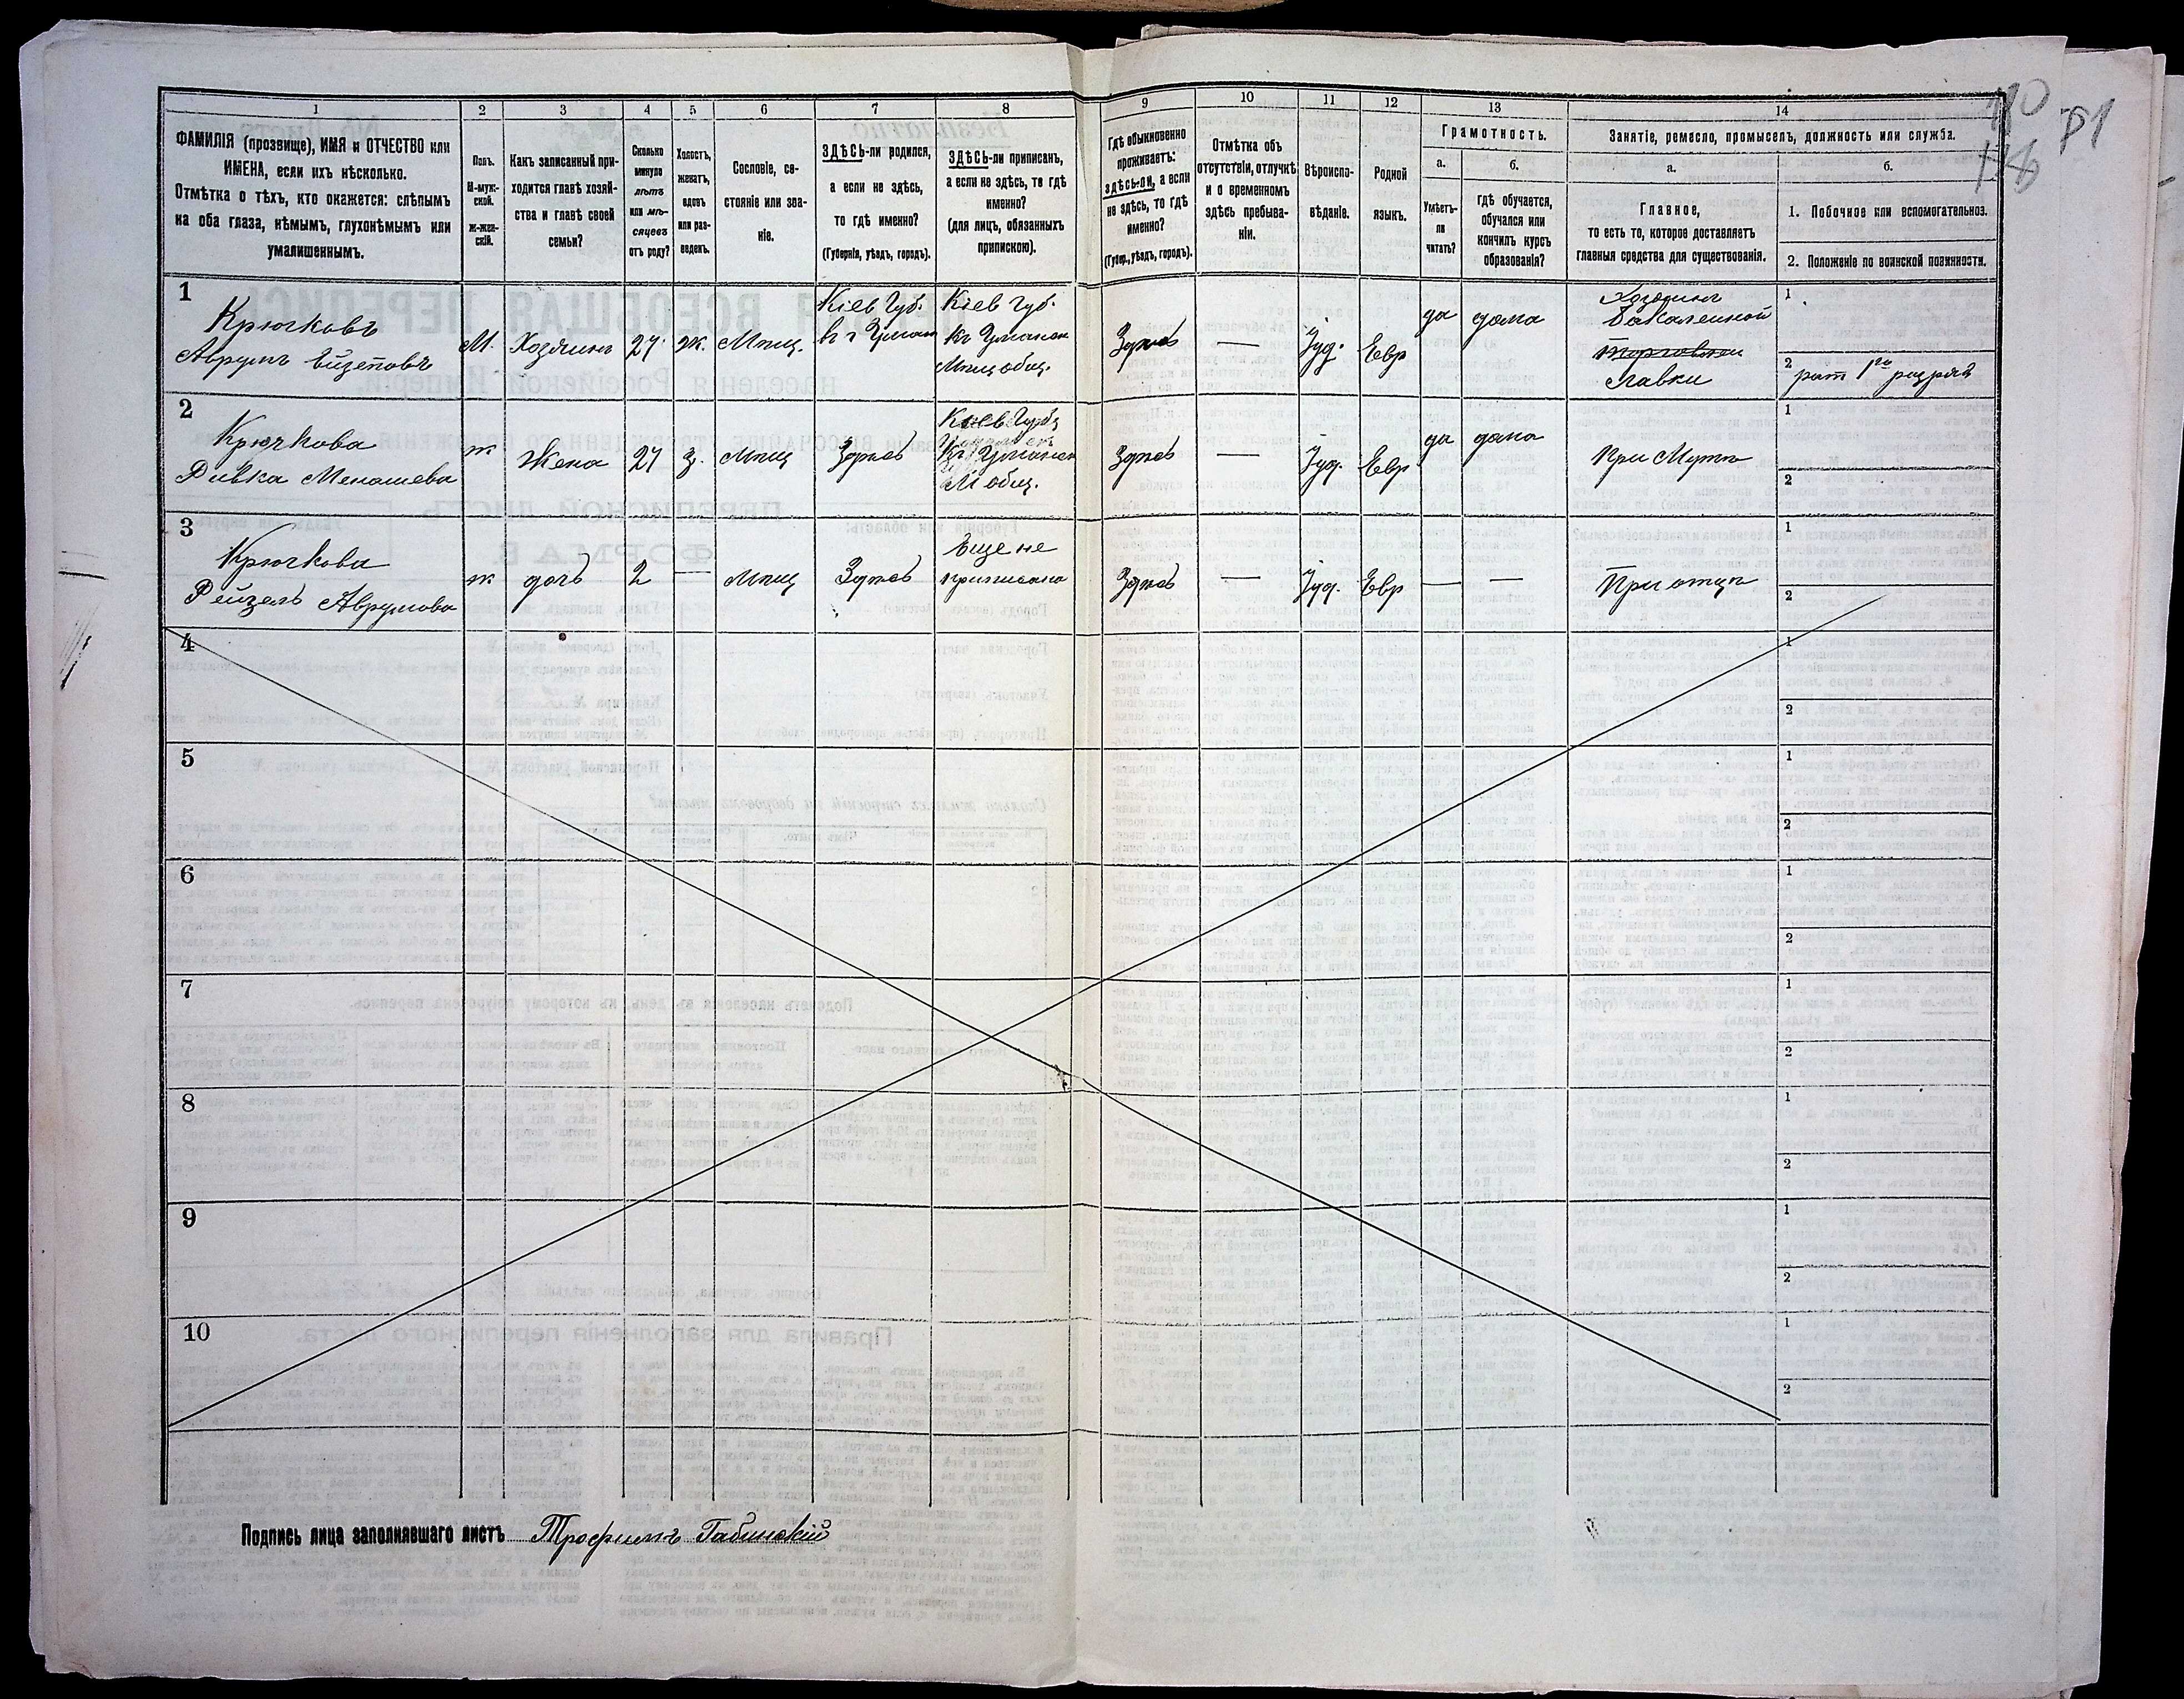 110
116
81
1
2
3
4
5
6
7
8
9
10
11
12
13
14
ФАМИЛІЯ (прозвище), ИМЯ и ОТЧЕСТВО или
ИМЕНА, если ихъ нѣсколько.
Отмѣтка о тѣхъ, кто окажется: слѣпымъ
на оба глаза, нѣмымъ, глухонѣмымъ или
умалишеннымъ.
Полъ.
М-муж-
ской.
ж-жен-
скій.
Какъ записанный при-
ходится главѣ хозяй-
ства и главѣ своей
семьи?
Сколько
минуло
лѣтъ
или мѣ-
сяцевъ
отъ роду?
Холостъ,
женатъ,
вдовъ
или раз-
веденъ.
Сословіе, со-
стояніе или зва-
ніе.
ЗДѢСЬ-ли родился,
а если не здѣсь,
то гдѣ именно?
(Губернія, уѣздъ, городъ).
ЗДѢСЬ-ли приписанъ,
а если не здѣсь, то гдѣ
именно?
(для лицъ, обязанныхъ
припискою).
Гдѣ обыкновенно
проживаетъ:
здѣсь-ли, а если
не здѣсь, то гдѣ
именно?
(Губер., уѣздъ, городъ).
Отмѣтка объ
отсутствіи, отлучкѣ
и о временномъ
здѣсь пребыва-
ніи.
Вѣроиспо-
вѣданіе.
Родной
языкъ.
Грамотность.
а.
Умѣетъ-
ли
читать?
б.
гдѣ обучается,
обучался или
кончилъ курсъ
образованія?
Занятіе, ремесло, промыселъ, должность или служба.
а.
Главное,
то есть то, которое доставляетъ
главныя средства для существованія.
б.
1. Побочное или вспомогательное.
2. Положеніе по воинской повинности.
1
Крючковъ
Аврумъ
М.
Хозяинъ
27
ж.
Мѣщ.
Кіев Губ.
въ г Умани
Кіев Губ.
къ Уманск
Мѣщ общ.
Здѣсь
—
Іуд.
Евр
да
дома
Хозяинъ
бакалейной
лавки
1
2
рат 1го разряд
2
Крючкова
Ривка Менашева
ж
Жена
27
з.
Мѣщ
Здѣсь
Кіев Губ
Къ Уманск
М общ.
Здѣсь
—
Іуд.
Евр
да
дома
При Мужѣ
1
2
3
Крючкова
Рейзель Аврумова
ж
дочь
2
—
Мѣщ
Здѣсь
Еще не
приписана
Здѣсь
—
Іуд.
Евр
—
—
При отцѣ
1
2
4
1
2
5
1
2
6
1
2
7
1
2
8
1
2
9
1
2
10
1
2
Подпись лица заполнявшаго листъ Трофимъ Габинскій